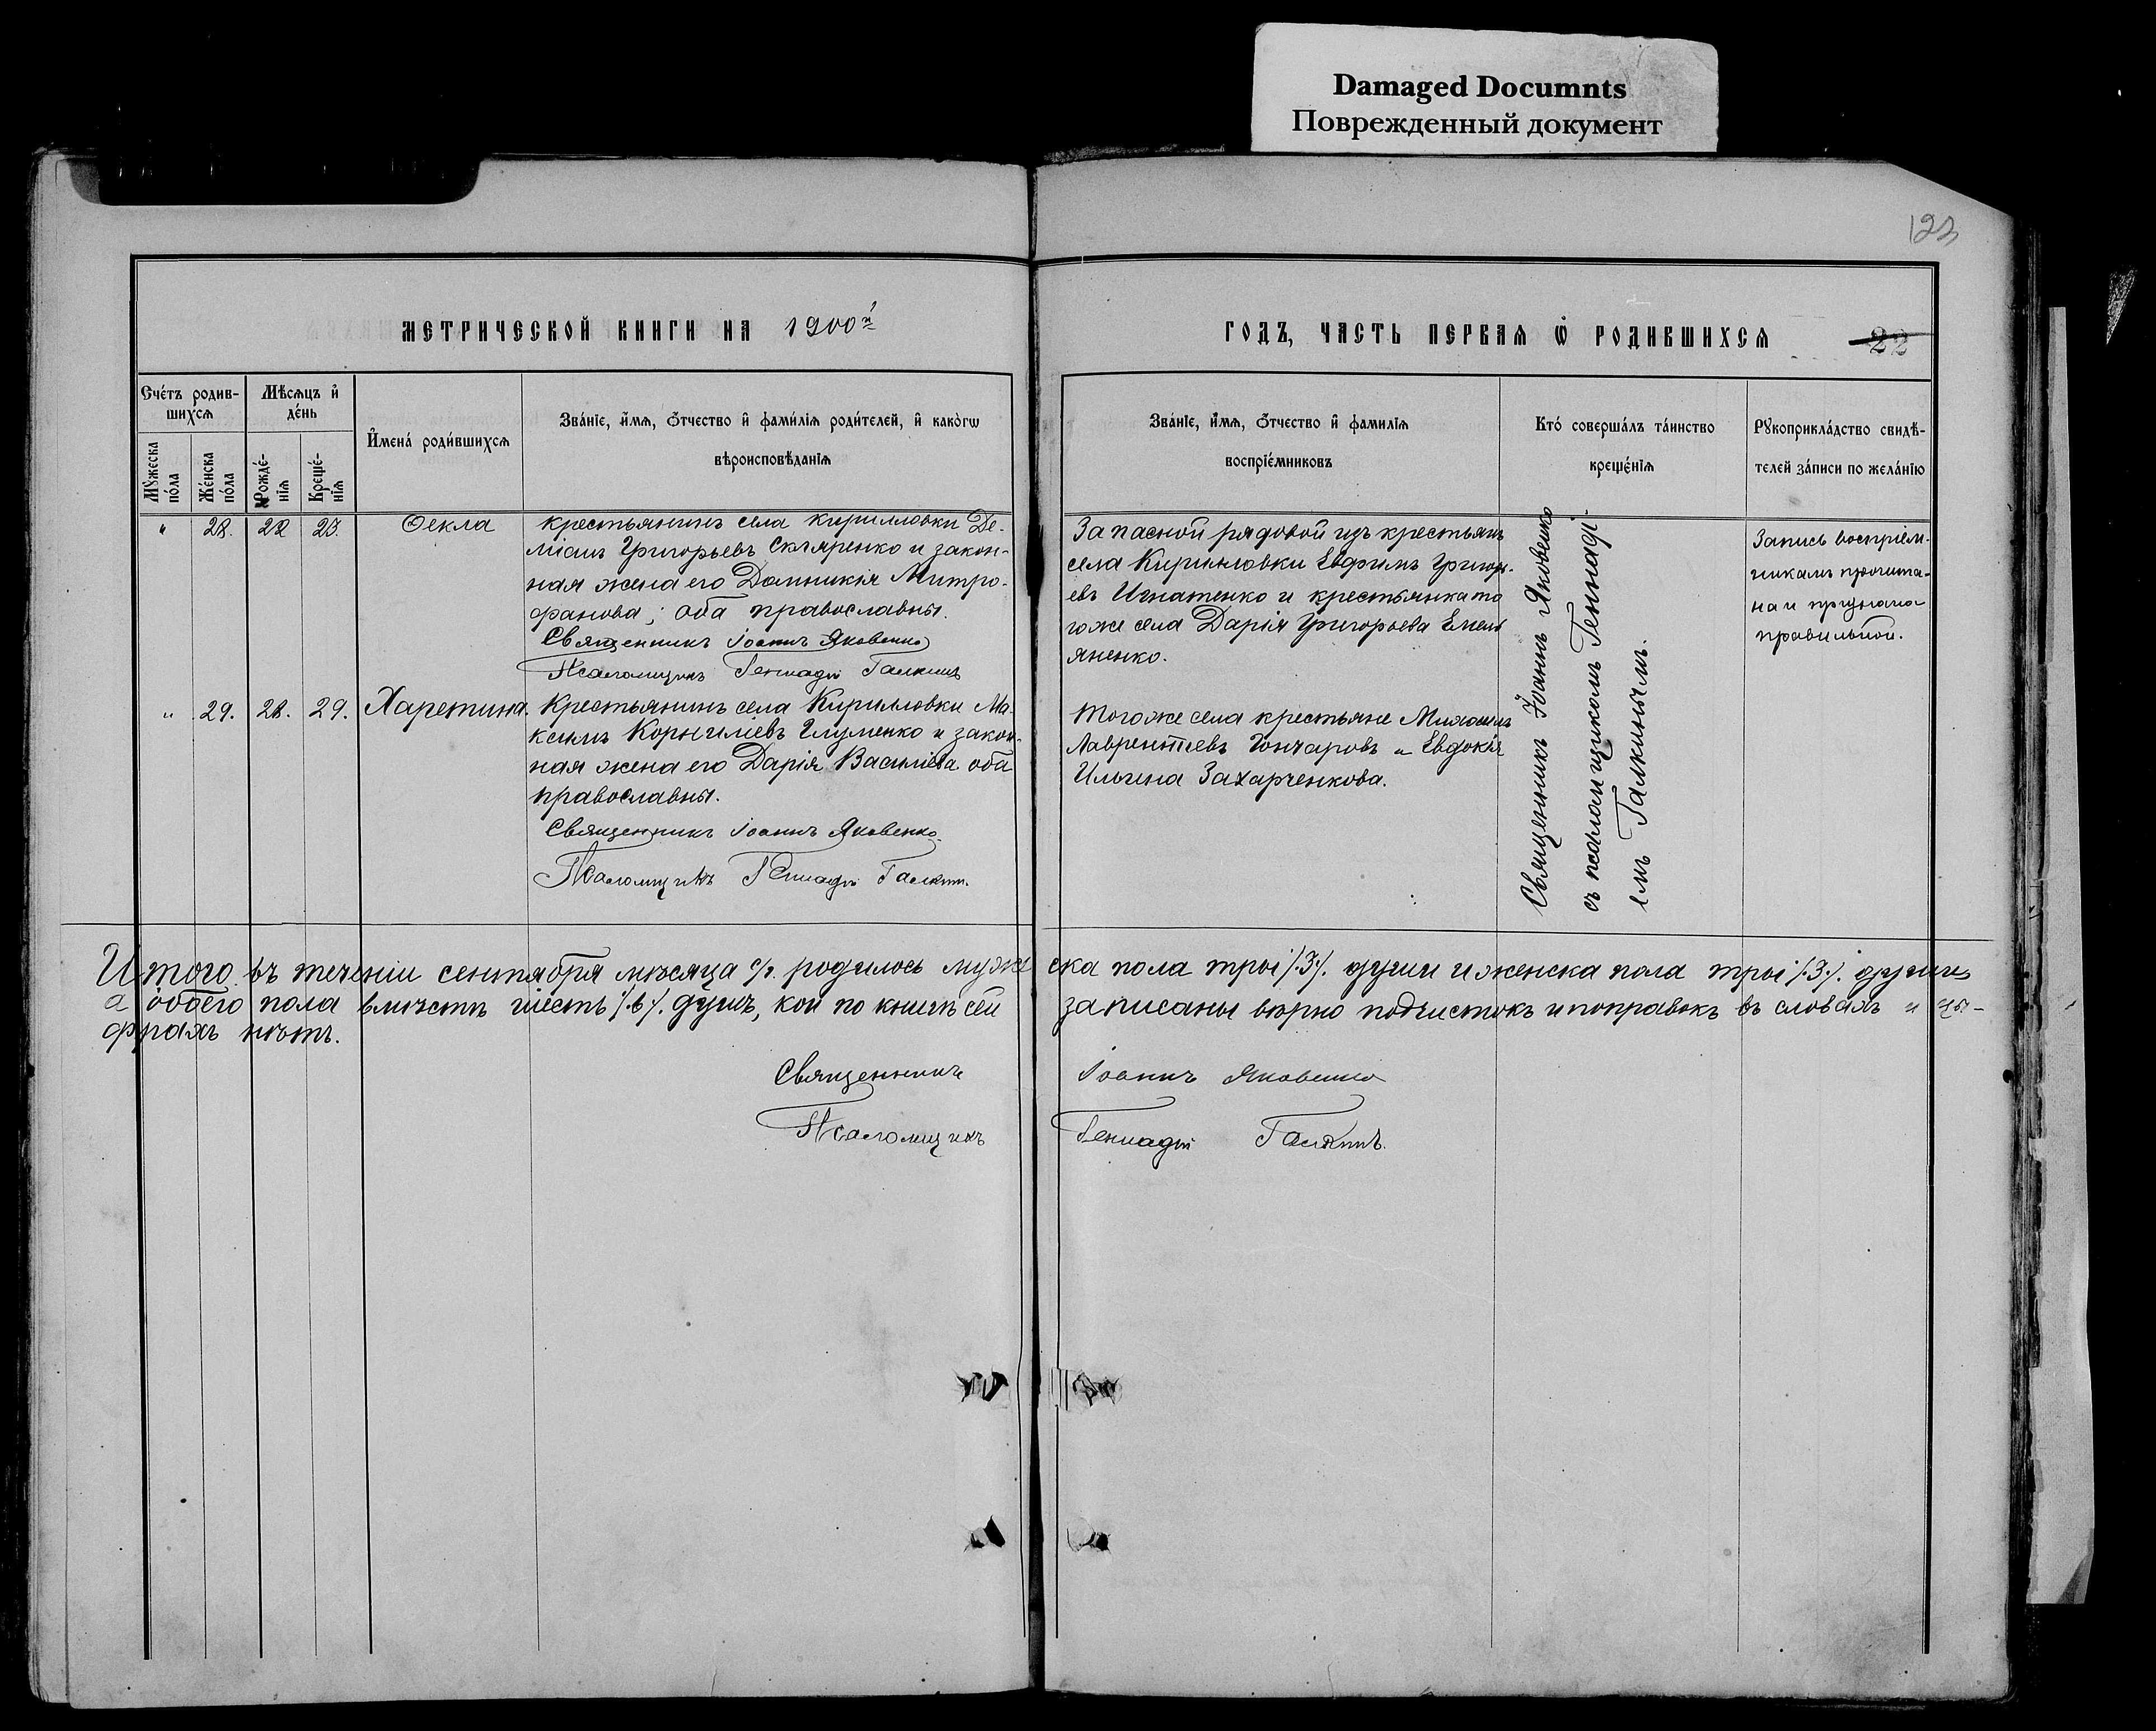 Damaged Documnts
Поврежденный документ
123
МЕТРИЧЕСКОЙ КНИГИ НА 1900й
ГОДЪ, ЧАСТЬ ПЕРВАЯ Ѿ РОДИВШИХСѦ 22
Счетъ родив-
шихсѧ
Мѣсѧцъ и
день
Имена родившихсѧ
Званіе, имѧ, отчество и фамиліѧ родителей, и какогѡ
вѣроисповѣданіѧ
Мужеска
пола
Женска
пола
Рожде-
ніѧ
Креще-
ніѧ
Званіе, имѧ, отчество и фамиліѧ
воспріемниковъ
Кто совершалъ таинство
крещеніѧ
Рукоприкладство свидѣ-
телей записи по желанію
" 28. 22 23. Ѳекла
Крестьянинъ села Кирилловки Де-
міанъ Григорьевъ Скляренко и закон-
ная жена его Домникія Митро-
фанова; оба православны.
Священникъ Іоаннъ Яковенко
Псаломщикъ Геннадій Галкинъ
Запасной рядовой изъ крестьянъ
села Кирилловки Евфимъ Григорь-
евъ Игнатенко и крестьянка то
гоже села Дарія Григорьева Емель
яненко.
Священникъ Іоаннъ Яковенко
съ псаломщикомъ Геннаді-
емъ Галкинымъ.
Запись воспріем-
никамъ прочита-
на и признана
правильной.
" 29. 28. 29. Харетина.
Крестьянинъ села Кирилловки Ма-
ксимъ Корниліевъ Глуменко и закон-
ная жена его Дарія Василіева оба
православны.
Священникъ Іоаннъ Яковенко.
Псаломщикъ Геннадій Галкин.
Тогоже села крестьяне
Лаврентіевъ Гончаровъ и Евдокія
Ильина Захарченкова.
Итого въ теченіи сентября мѣсяца с/г. родилось муже
ска пола трои /.3./. души и женска пола трои /.3./. души,
а обоего пола вмѣстѣ шесть /.6./. душъ, кои по книгѣ сей
записаны вѣрно подчистокъ и поправокъ въ словахъ и цы-
фрахъ нѣтъ.
Священникъ Іоаннъ Яковенко
Псаломщикъ Геннадій Галкинъ.